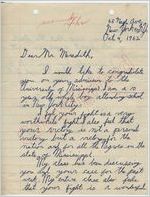 New York
Oct 4, 1962
Dear Mr. Meredith,
I would like to congratulate
you on your admission to the
University of Mississippi. I am a 10
year old white boy attending school
in New York City.
I feel your fight was a very
worthwhile fight. I also feel that
your victory is not a personal
victory but a victory for the
nation and for all the Negroes in the
state of Mississippi.
My class has been discussing
you and your case for the past
week and the class also feels
that your fight is a wonderful